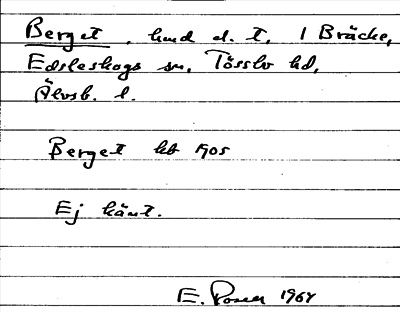 Berget, hmd d. t. 1 Bräcke,
Edsleskogs sn, Tössbo hd,
Älvsb. l.
Berget kb 1905
Ej känt.
E. 1967